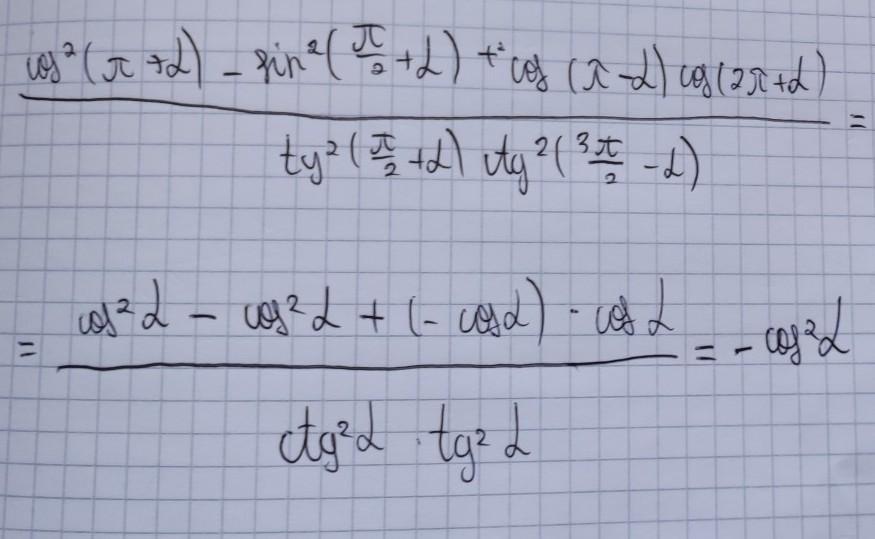 cos²(π+α) - sin²(π/2+α) + cos(π-α) cos(2π+α)
=
tg²(π/2+α) ctg²(3π/2-α)
cos²α - cos²α + (-cosα) · cosα
=
= -cos²α
ctg²α · tg²α